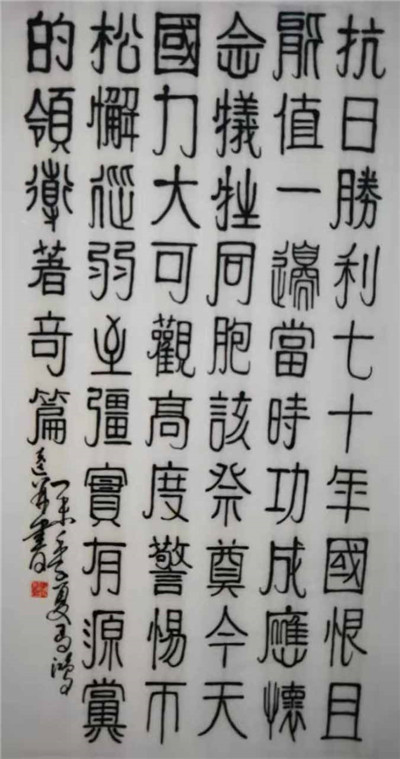 抗日勝利七十年國恨且
值一邊當時功成應懷
念犧牲同胞該祭奠今天
國力大可觀高度警惕不
松懈從弱至彊實有源黨
的領導著奇篇
乙未夏
書